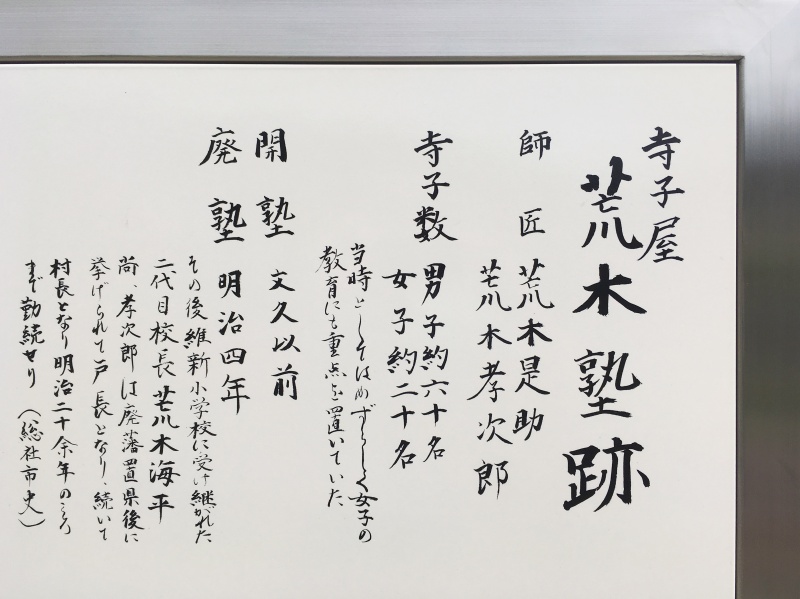 寺子屋
荒木塾跡
師匠 荒木是助
荒木孝次郎
寺子数 男子約六十名
女子約二十名
当時としてはめずらしく女子の
教育にも重点を置いていた
開塾 文久以前
廃塾 明治四年
その後維新小学校に受け継がれた
二代目校長 荒木海平
尚、孝次郎は廃藩置県後に
挙げられて戸長となり、続いて
村長となり明治二十余年のころ
まで勤続せり (総社市史)